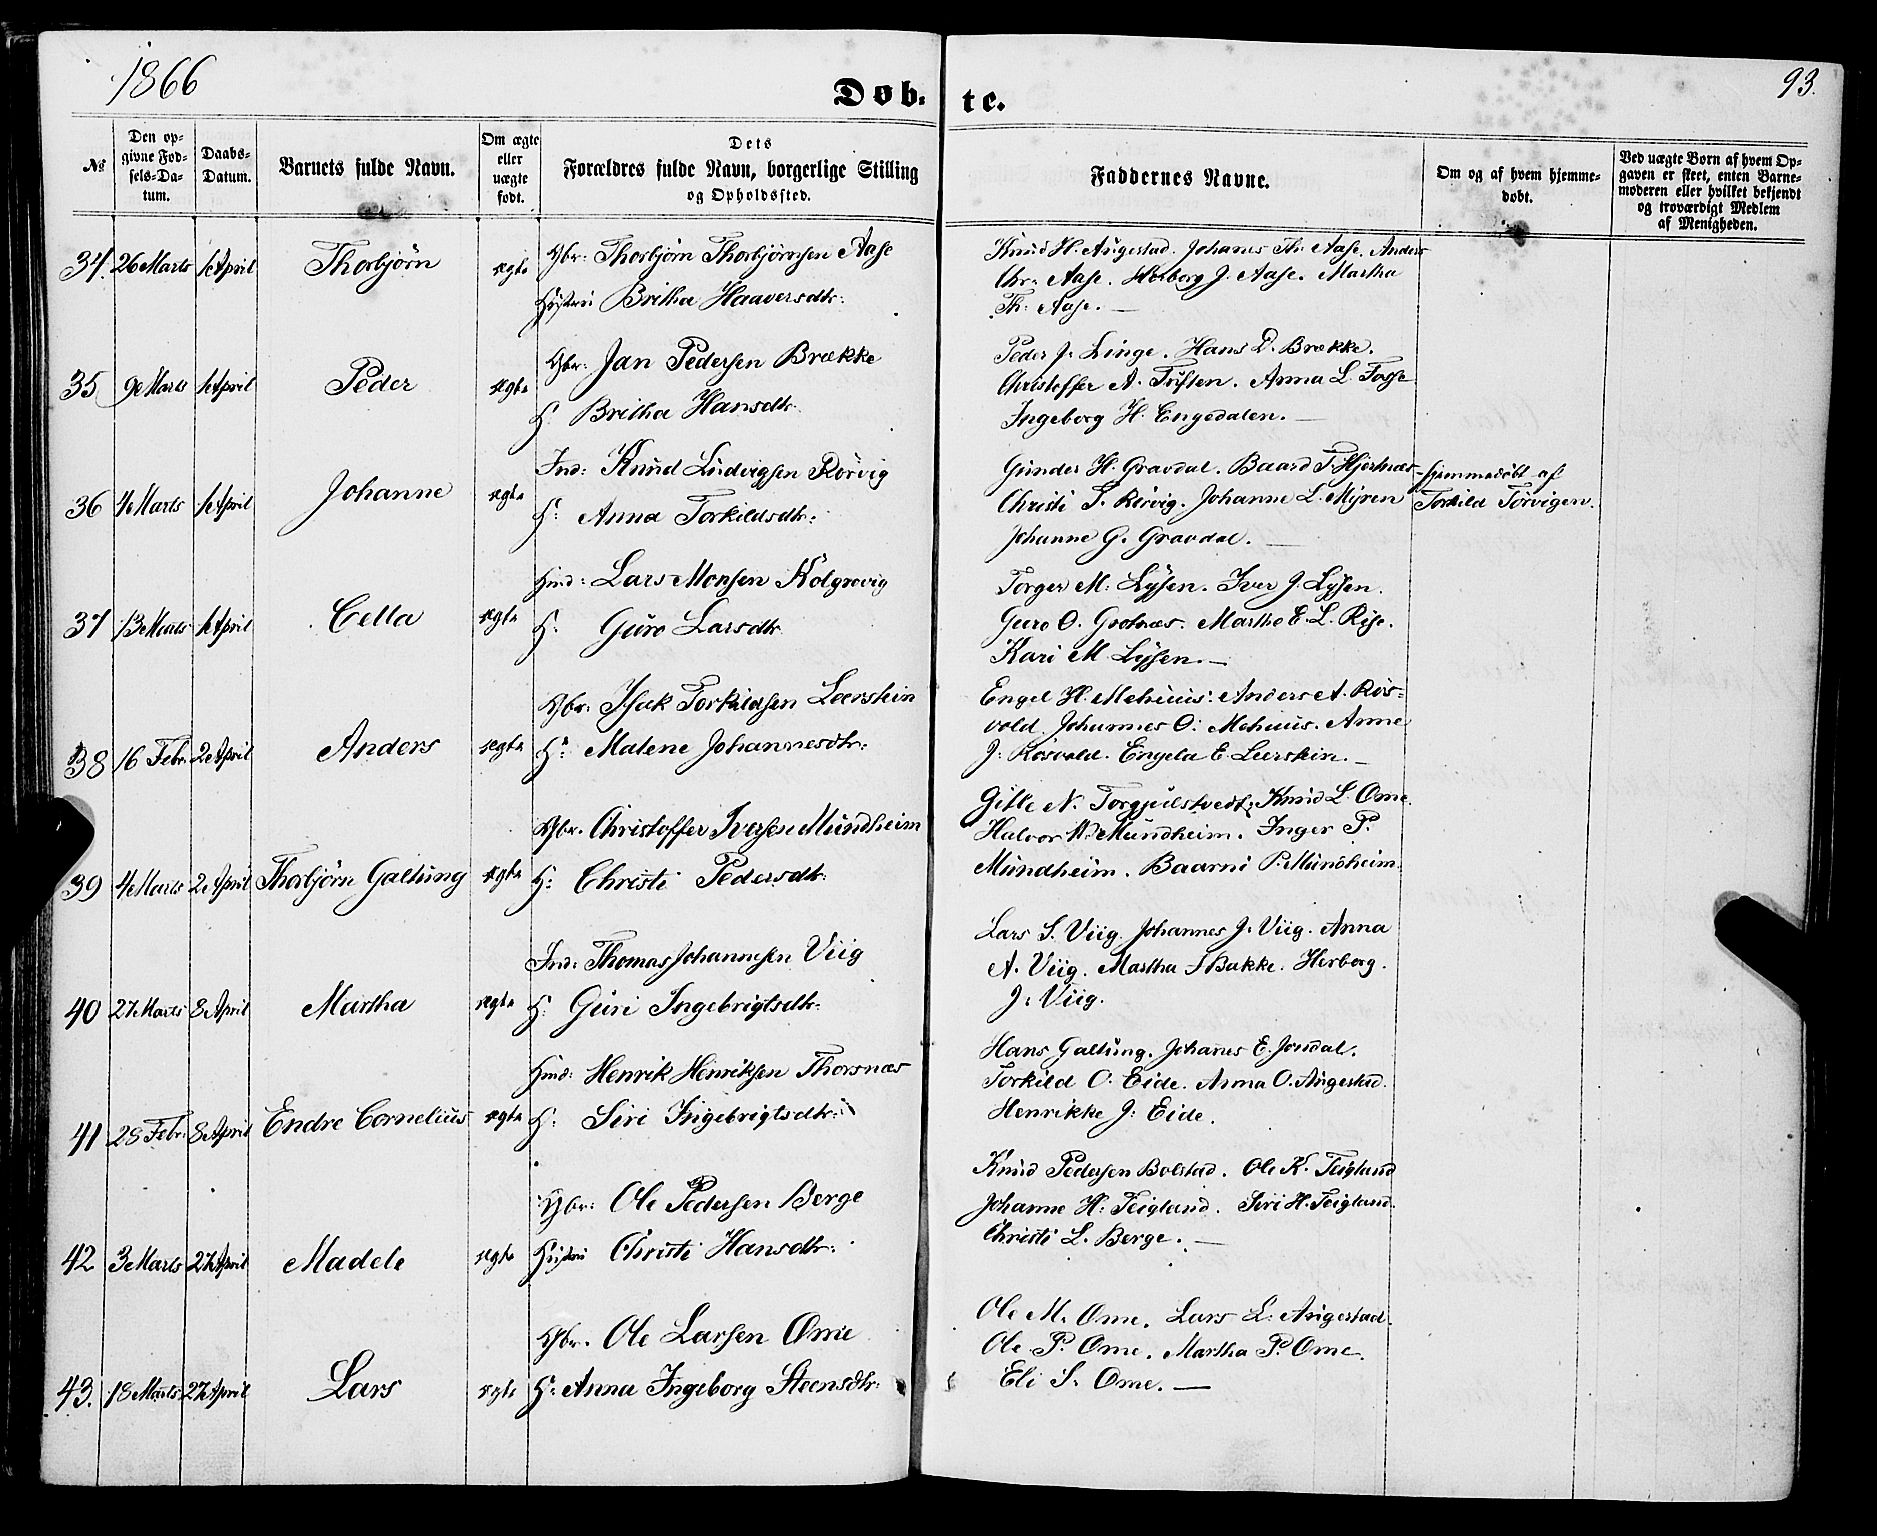 1866
93.
Døb. te.
No
Den op-
givne Fød-
sels-Da-
tum.
Daabs-
Datum.
Barnets fulde Navn.
Om ægte
eller
uægte
født.
Dets
Forældres fulde Navn, borgerlige Stilling
og Opholdssted.
Faddernes Navne.
Om og af hvem hjemme-
døbt.
Ved uægte Børn af hvem Op-
gaven er skeet, enten Barne-
moderen eller hvilket bekjendt
og troværdigt Medlem
af Menigheden.
34. 26 Marts 1e April Thorbjørn ægte
Gbr: Thorbjørn Thorbjørnsen Aase
Hustru Britha Haaversdtr:
Knud H. Augestad. Johanes Th: Aase. Anders
Chr: Aase. Herborg J. Aase. Martha
Th: Aase. —
35 9e Marts 1e April Peder ægte
Gbr: Jan Pedersen Brække
H. Britha Hansdtr.
Peder J. Linge. Hans D. Brække.
Christoffer A. Tuften. Anna L. Fosse
Ingeborg H. Engedalen. —
36 4e Marts 1e April Johanne ægte
Ind: Knud Ludvigsen Rørvig
H: Anna Torkildsdtr:
Gunder H. Gravdal. Baard T. Hjertnæs
Christi T. Rørvig. Johanne L. Myren
Johanne G. Gravdal. —
Hjemmedøbt af
Torkild Tørvigen.
37 13e Marts 1e April Cella ægte
Huud: Lars Monsen Kolgrovig
H: Guro Larsdtr
Torger M: Lyssen. Iver J. Lyssen.
Guro O. Grotnæs. Martha E. L. Rise.
Kari M Lyssen. —
38 16 Febr. 2e April Anders ægte
Gbr: Isak Torkildsen Leerstein
H: Malene Johannesdtr:
Engel H. Mehuus. Anders A. Ros-
vold. Johannes O: Mehuus. Anne
J: Rosvold. Engela E. Leerstein. —
39 4e Marts 2e April Thorbjørn Galtung ægte
Gbr. Christoffer Iversen Mundheim
H: Christi Pedersdtr:
Gitle N. Torgjulstvedt, Knud L. Ome.
Halvor N. Mundheim. Inger P.
Mundheim. Baarni P. Mundheim.
40 27 Marts 8 April Martha ægte
Ind: Thomas Johannesen Viig
H: Guri Ingebrigtsdtr:
Lars S. Viig. Johannes J. Viig. Anna
A. Viig. Martha S Bakke. Herborg.
J: Viig.
41 28 Febr. 8 April Endre Cornelius ægte
Huud: Henrik Henriksen Thorsnæs
H: Siri Ingebrigtsdtr:
Hans Galtung. Johanes E. Jondal.
Torkild O. Eide. Anna O. Augestad.
Henrikke J: Eide.
42 3e Marts 27 April Madele ægte
Gbr: Ole Pedersen Berge
Hustru Christi Hansdtr:
Knud Pedersen Bolstad. Ole K. Teigland
Johanne H: Teigland. Siri H. Teigland.
Christi L. Berge. —
43. 18 Marts 27 April Lars ægte
Gbr. Ole Larsen Ome
H: Anna Ingeborg Steensdtr:
Ole M. Ome. Lars L: Augestad.
Ole P. Ome. Martha P. Ome.
Eli S. Ome. —